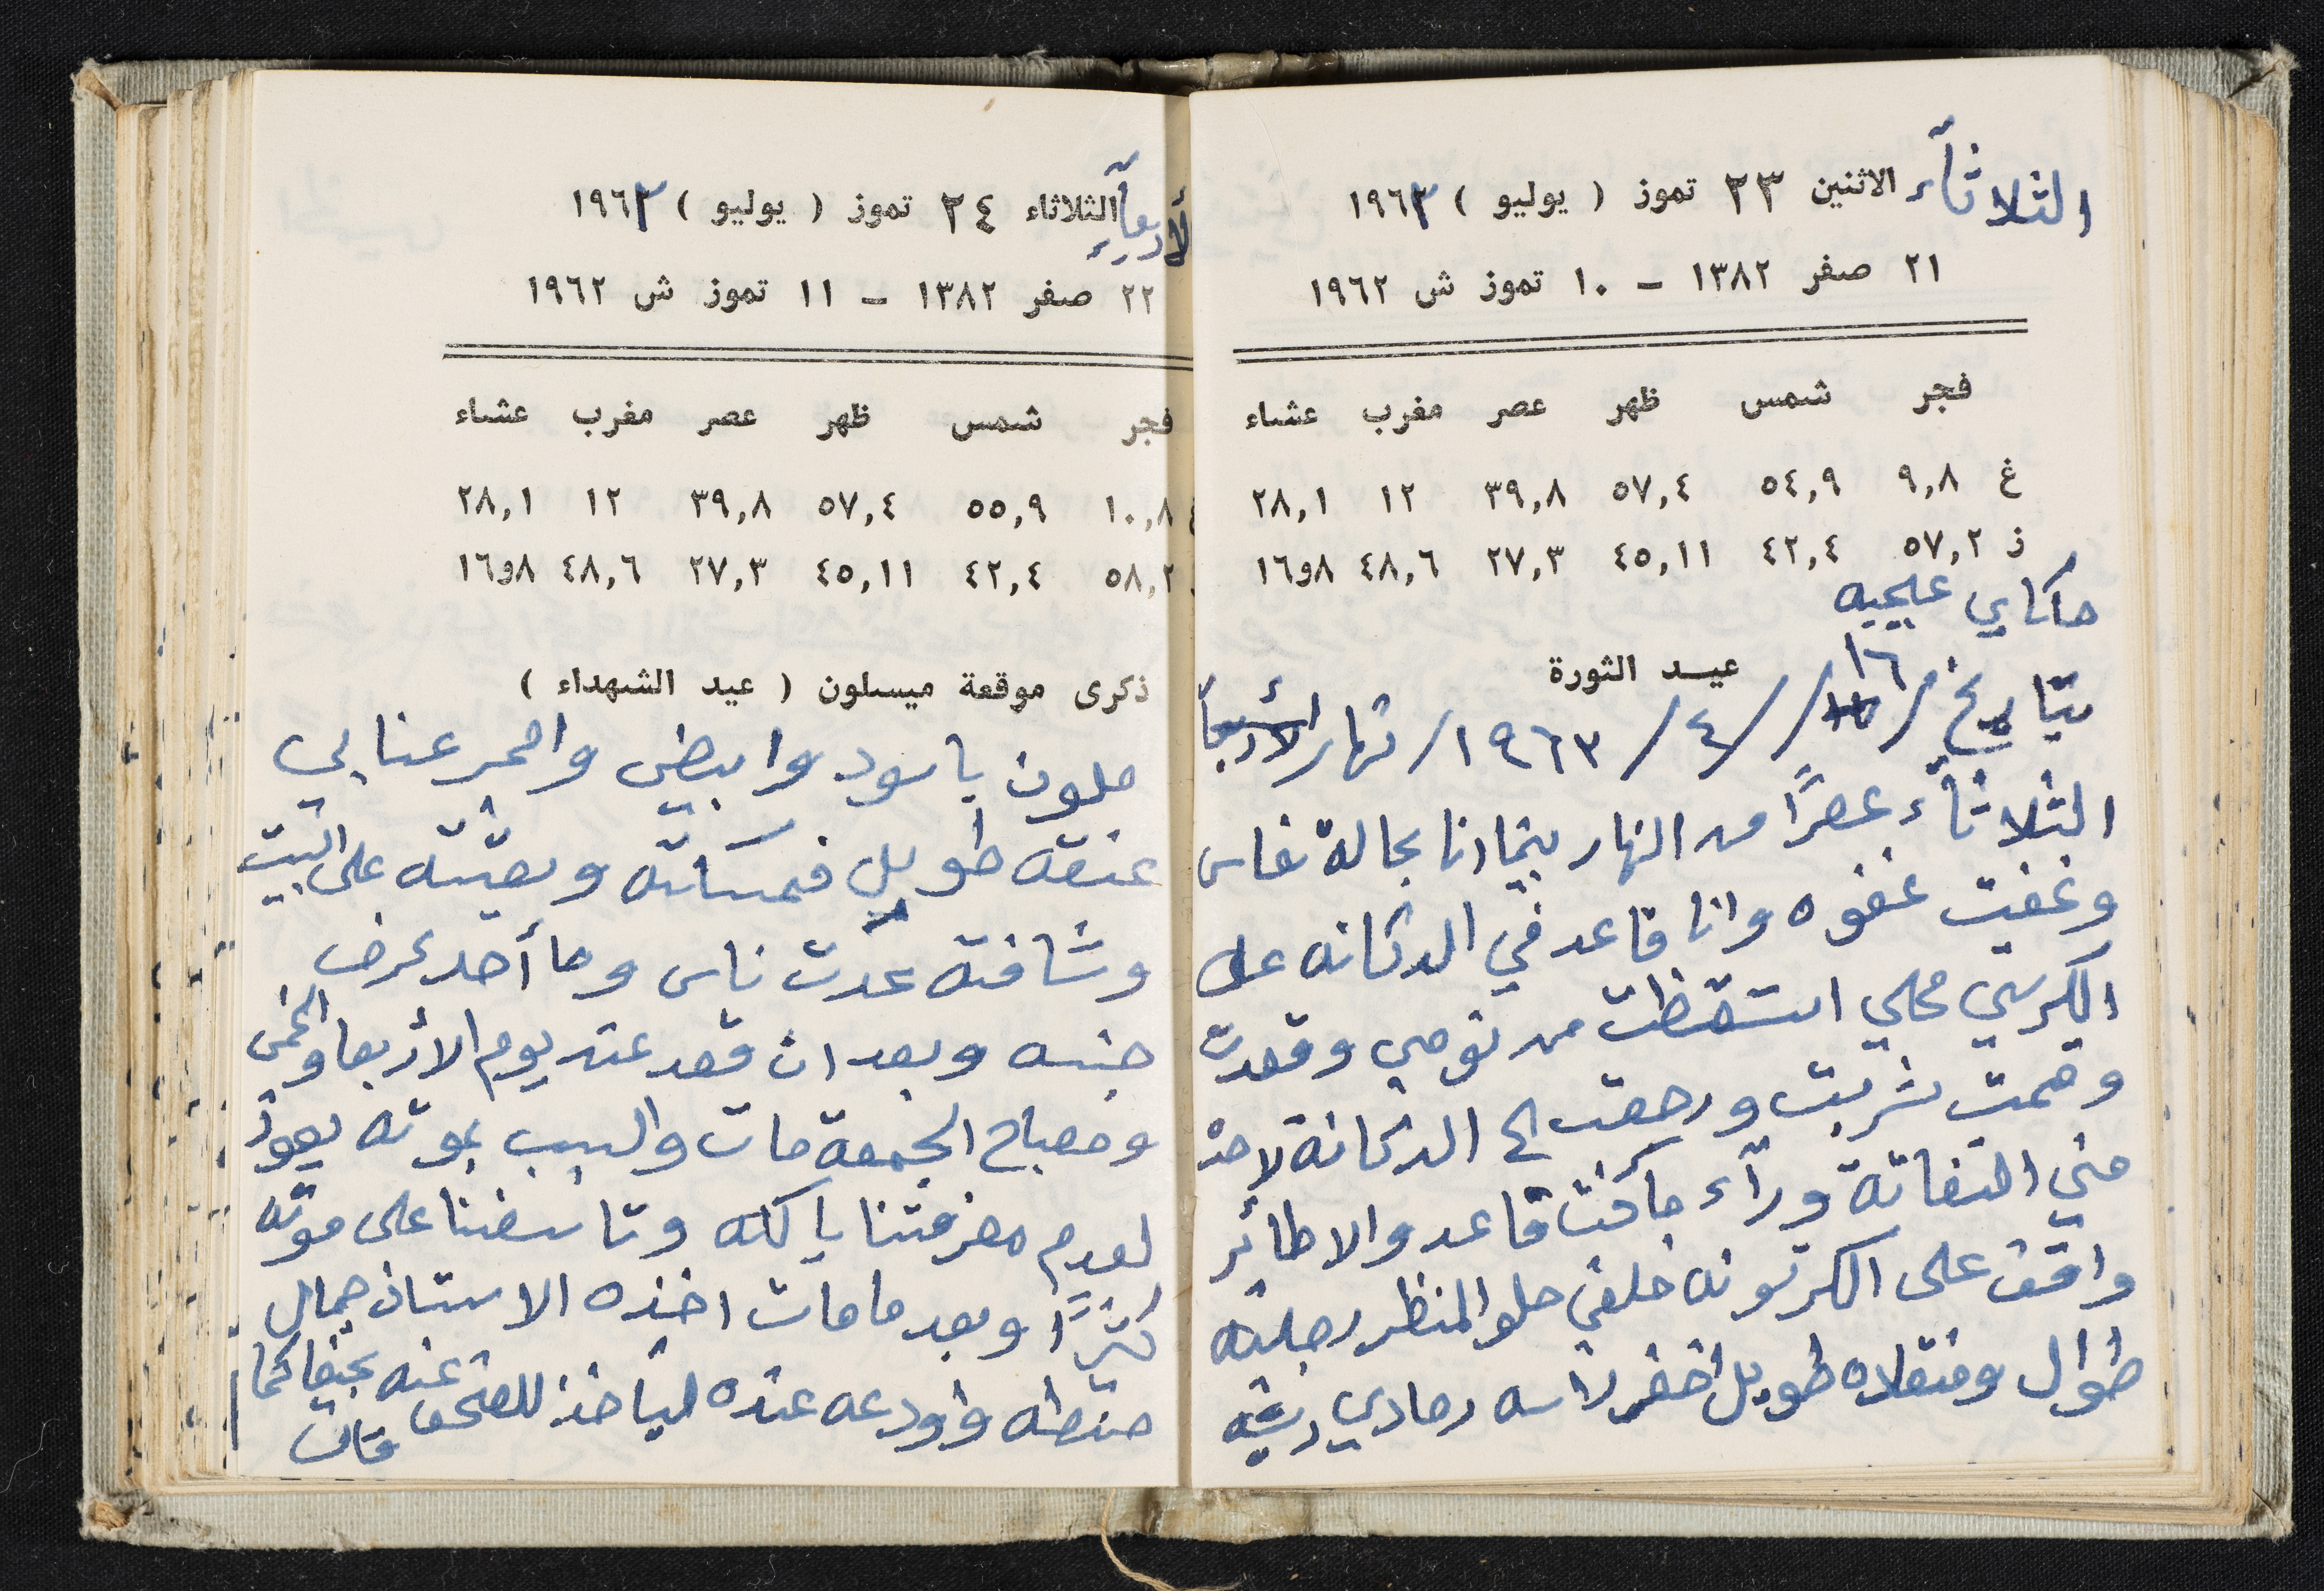 الثلاثآء الاثنين ٢٣ تموز ( يوليو ) ١٩٦٣
٢١ صفر ١٣٨٢ - ١٠ تموز ش ١٩٦٢
فجر شمس ظهر عصر مغرب عشاء
غ ٩,٨ ٥٤,٩ ٥٧,٤ ٣٩,٨ ١٢ ٢٨,١
ز ٥٧,٢ ٤٢,٤ ٤٥,١١ ٢٧,٣ ٤٨,٦ ٨و١٦
حاكاي عجيبه
عيد الثورة
بتاريخ /١٦/٤/١٩٦٣/ نهار الأربعآ
الثلاثآء عصرًا من النهار بينما انا بحالة نعاس
وغفيت غفوه وانا قاعد في الدكانه على
الكرسي محلي استقظت من نومي وقعدت
وقمت شربت ورجعت الى الدكانة لاحذ
مني التفاتة ورآء ما كنت قاعد والا طائر
واقف على الكرتونه خلفي حلو المنظر رجليه
طوال ومنقاده طويل اخضر راسه رمادي ريشه
الأربعآء الثلاثاء ٢٤ تموز ( يوليو ) ١٩٦٣
٢٢ صفر ١٣٨٢ - ١١ تموز ش ١٩٦٢
فجر شمس ظهر عصر مغرب عشاء
١٠,٨ ٥٥,٩ ٥٧,٤ ٣٩,٨ ١٢ ٢٨,١
٥٨,٢ ٤٢,٤ ٤٥,١١ ٢٧,٣ ٤٨,٦ ٨و١٦
ذكرى موقعة ميسلون ( عيد الشهداء )
ملون باسود وابيض واحمر عنابي
عنقه طويل فمسكته وبعتته على البيت
وشافته عدت ناس وما أحد عرف
جنسه وبعد ان قعد عند يوم الأربعا والخمس
ومصباح الجمعة مات والسبب بموته يعوذ
لعدم معرفتنا باكله وتاسفنا على موته
كثيرًا وبعد ما مات اخذه الاستاذ جمال
حنطه واودعه عنده لياخذ للمتحف عنه بحيفا كما
قال